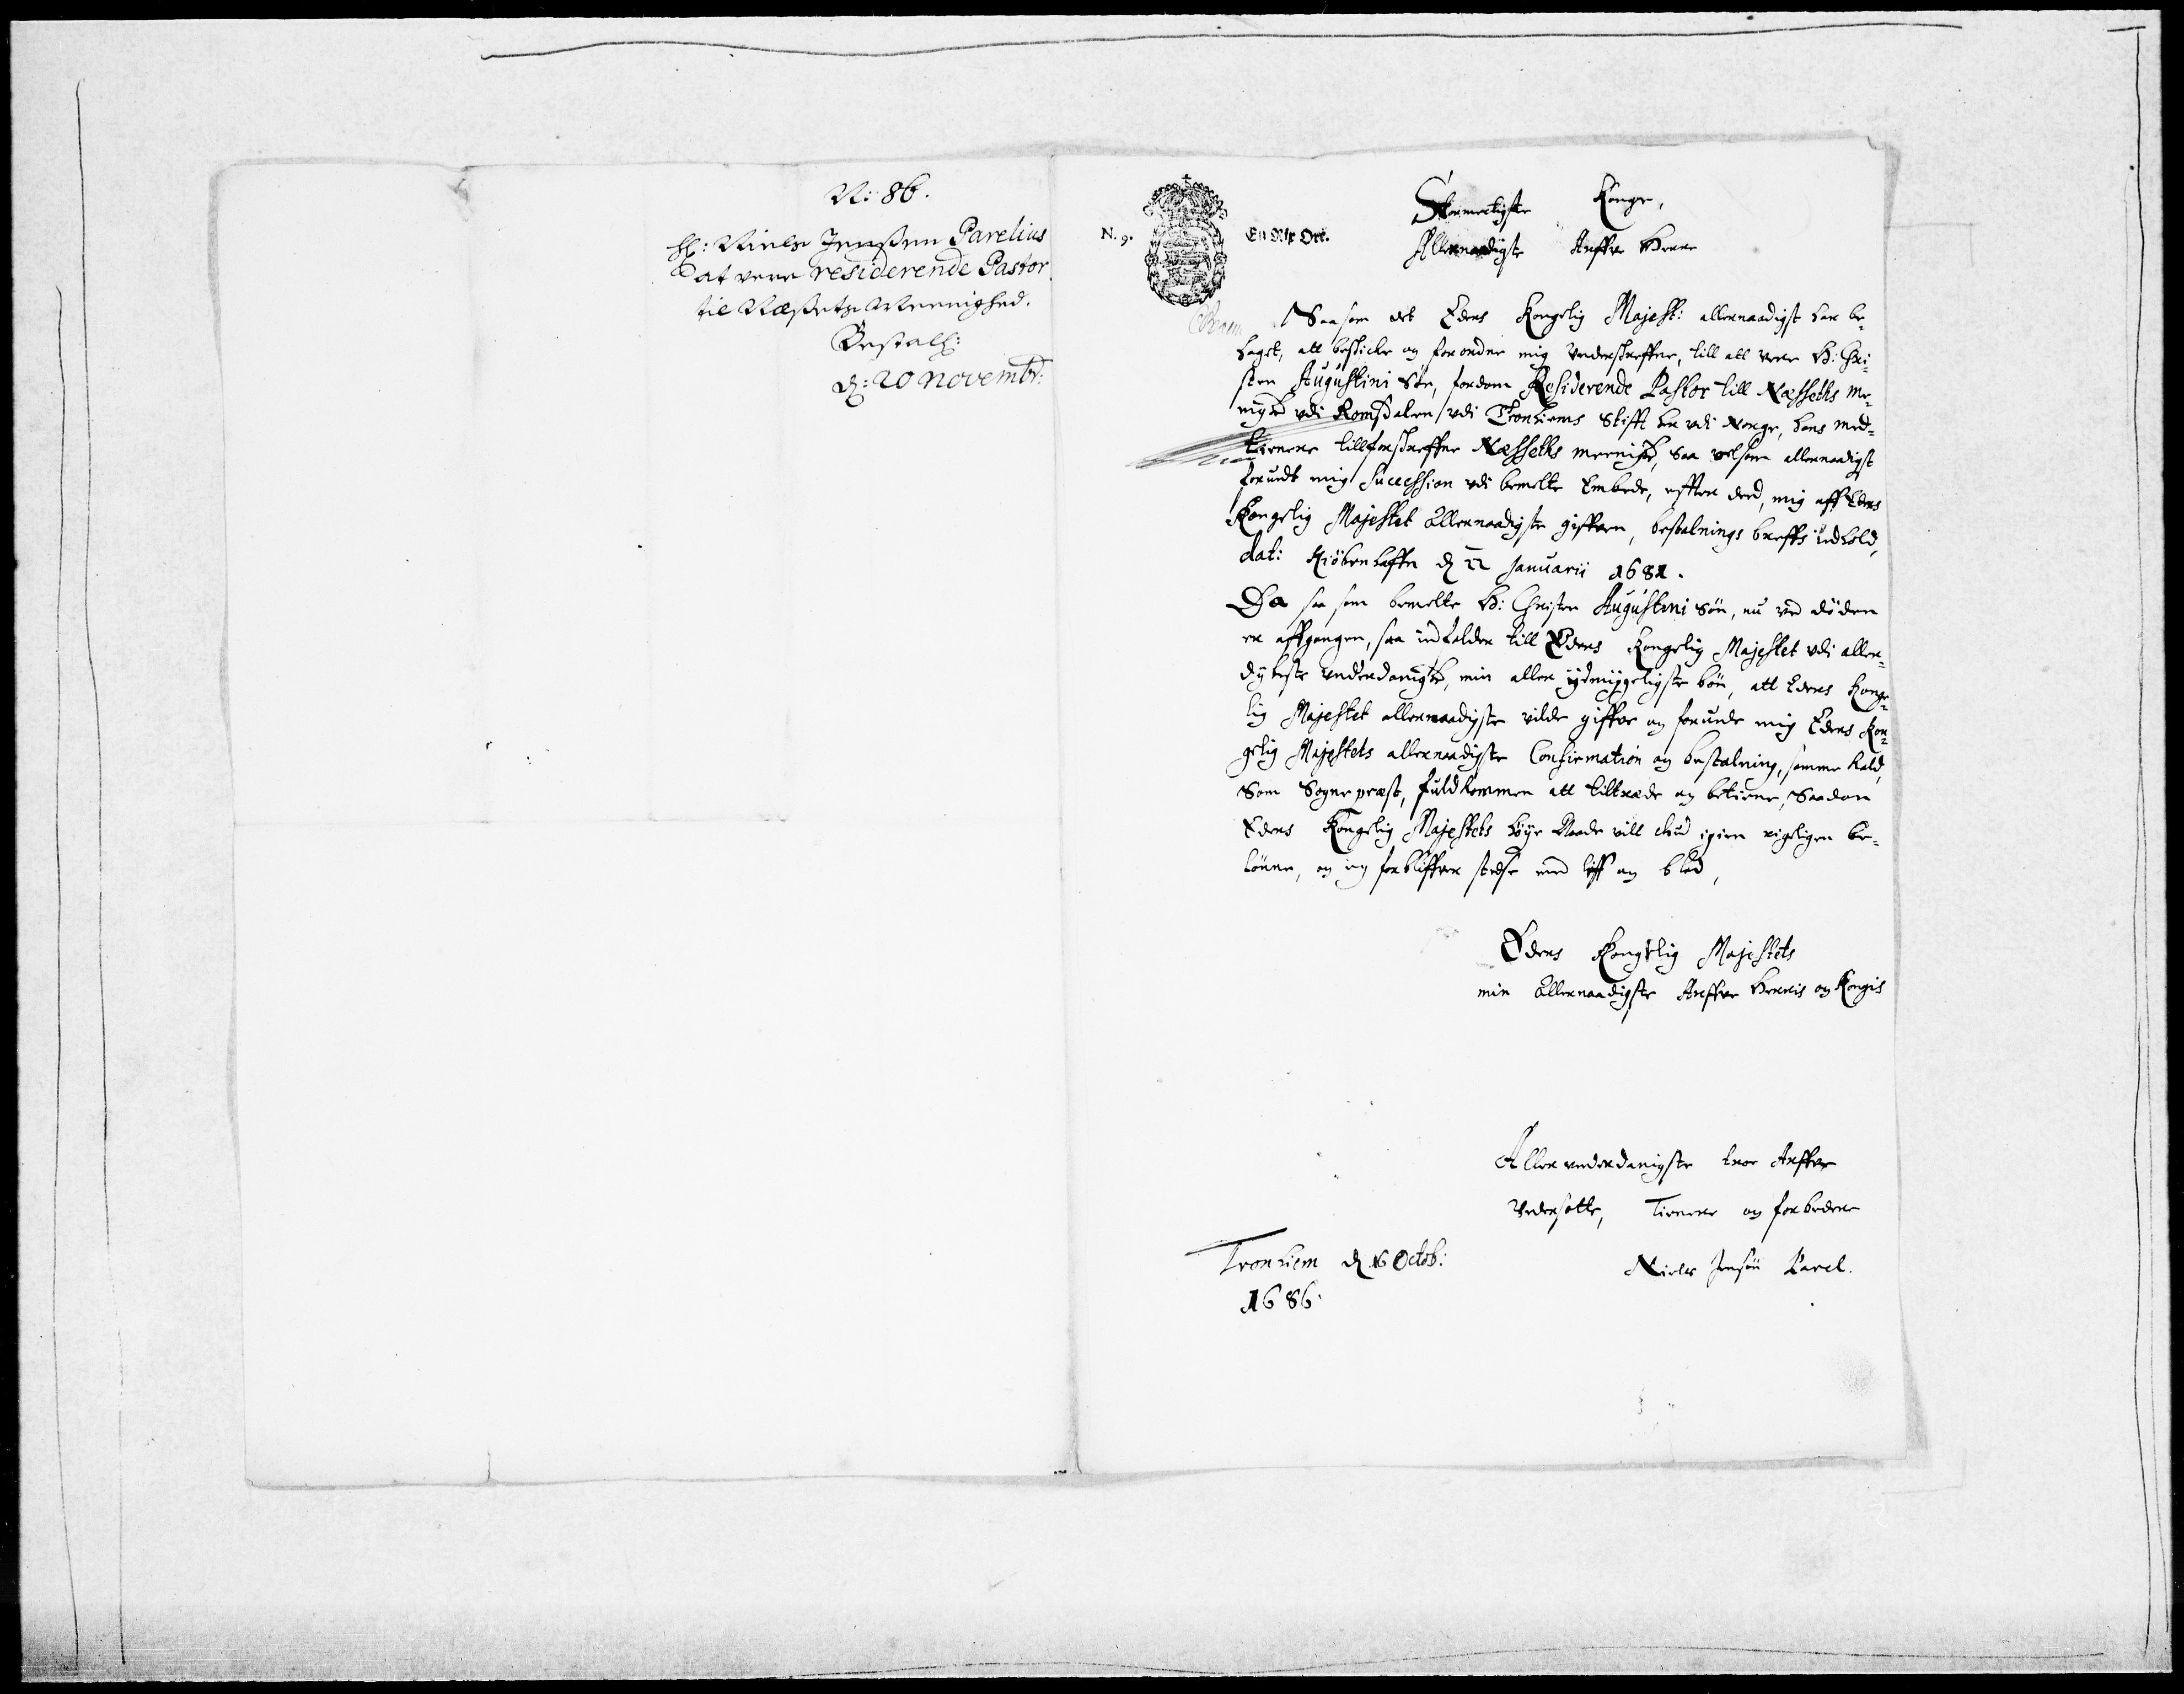 N: 86.
H: Niels Jenssen Parelius
at vere residerende Pastor
til Næssets Meenighed.
Bestall:
d: 20 Novembr:
N. 9.
En Rix Ort.
Stormectigste Konge,
Allernaadigste Arffve Herre
Saasom det Eders Kongelig Majest: allernaadigst har be-
haget, att beskicke og forordne mig underskreffne, till att vere H: Chri-
sten Augustini Søn, fordom Residerende Pastor till Næsseths me-
nighed udi Romsdalen udi Tronhiems Stifft her udi Norge, hans med-
tienere till forskreffne Næsseths meenighed, saa velsom allernaadigst
forundt mig Succession udi bemelte Embede, effter ded, mig aff Eders
Kongelig Majestet Allernaadigste giffven, bestalnings breffs indhold,
dat: Kiøbenhaffn d 22 Januarii 1681.
Da saa som bemelte H: Christen Augustini Søn, nu ved døden
er affgangen, saa indfalder till Eders Kongelig Majestet udi aller-
dybeste underdanighed, min aller ydmygeligste bøn, att Eders Konge-
lig Majestet allernaadigste vilde giffve og forunde mig Eders Kon-
gelig Majestets allernaadigste Confirmation og bestalning, samme kald,
Som Sognepræst, fuldkommen att tiltræde og betiene, Saadan
Eders Kongelig Majestets høye Naade vill Gud igien rigeligen be-
lønne, og ieg forbliffver stedse med liff og blod,
Eders Kongelig Majestets
min Allernaadigste Arffve Herris og Kongis
Allerunderdanigste troe Arffve
Undersotte, Tienere og forbedere
Tronhiem d 16 Octob:
1686.
Niels Jensøn Parel.